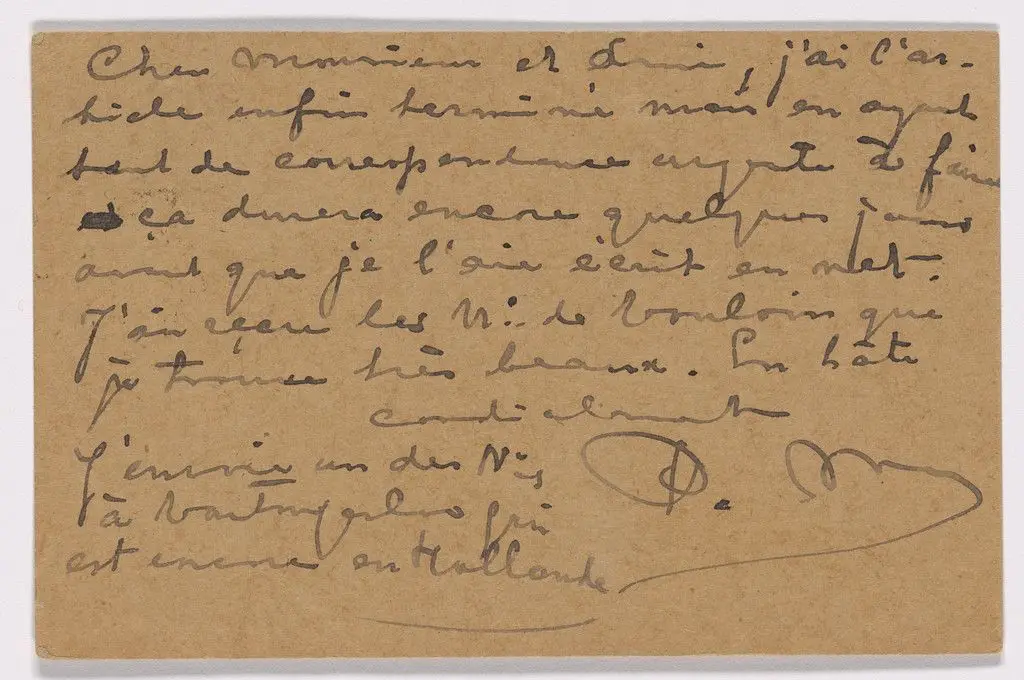 Cher Monsieur et Ami, j'ai l'ar-
ticle enfin terminé mais en ayant
tant de correspondance urgente à faire
ça durera encore quelques jours
avant que je l'aie écrit en net.
J'ai reçu les Nos. de Vouloir que
je trouve très beaux. En hâte
cordialement
J'envoie un des Nos
à Vantongerloo qui
est encore en Hollande
P. M